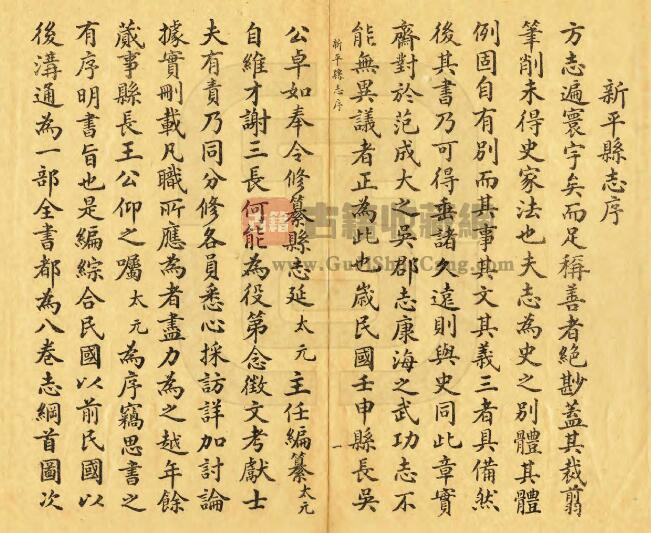 新平縣志序
方志遍寰宇矣而足稱善者絕尠蓋其裁翦
筆削未得史家法也夫志為史之別體其體
例固自有別而其事其文其義三者具備然
後其書乃可得垂諸久遠則與史同此章實
齋對於范成大之吳郡志康海之武功志不
能無異議者正為此也歲民國壬申縣長吳
新平縣志序
一
公卓如奉令修纂縣志延太元主任編纂太元
自維才謝三長何能為役第念徵文考獻士
夫有責乃同分修各員悉心採訪詳加討論
據實刪載凡職所應為者盡力為之越年餘
蕆事縣長王公仰之囑太元為序竊思書之
有序明書旨也是編綜合民國以前民國以
後溝通為一部全書都為八卷志綱首圖次
古籍
古籍收藏網
www.GuJiShouCang.com